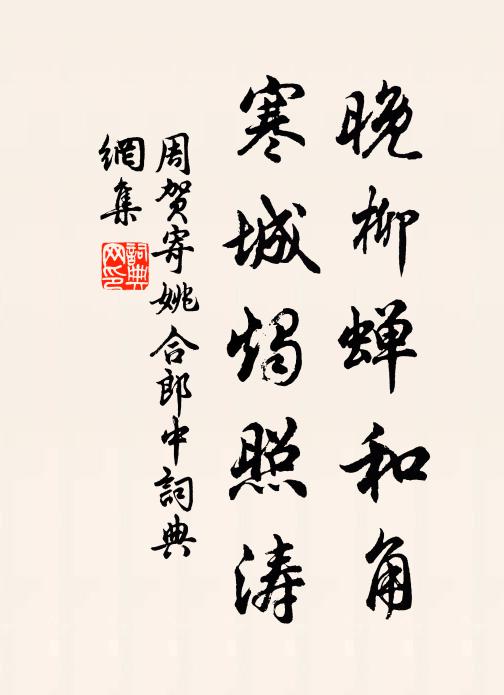 晚柳蝉和角
寒城烛照涛
周贺寄姚合郎中詞典
網集
詞典網印